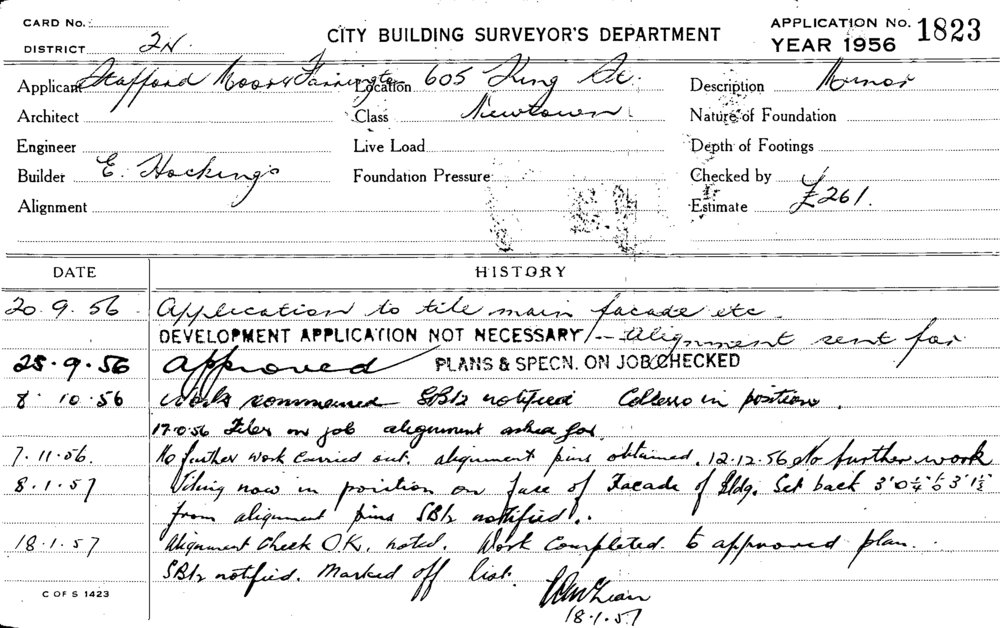 CARD No.
DISTRICT 2N.
CITY BUILDING SURVEYOR'S DEPARTMENT
APPLICATION No. 1823
YEAR 1956
Applicant Stafford Moor & Farrington Location 605 King St. Description Minor
Architect Class Newtown Nature of Foundation
Engineer Live Load Depth of Footings
Builder E. Hockings Foundation Pressure Checked by
Alignment Estimate £261.
DATE HISTORY
20.9.56 Application to tile main facade etc.
DEVELOPMENT APPLICATION NOT NECESSARY / -- Alignment sent for
25.9.56 Approved PLANS & SPECN. ON JOB CHECKED
8.10.56 Work commenced notified in position.
17.10.56 Tiler on job alignment asked for.
7.11.56. No further work carried out. alignment pins obtained. 12.12.56 No further work
8.1.57 Tiling now in position on face of Facade of Bldg. Set back 3'0¼" to 3'1½"
from alignment pins notified.
18.1.57 Alignment Check OK. noted. Work Completed to approved plan.
notified. Marked off list.
C OF S 1423
18.1.57